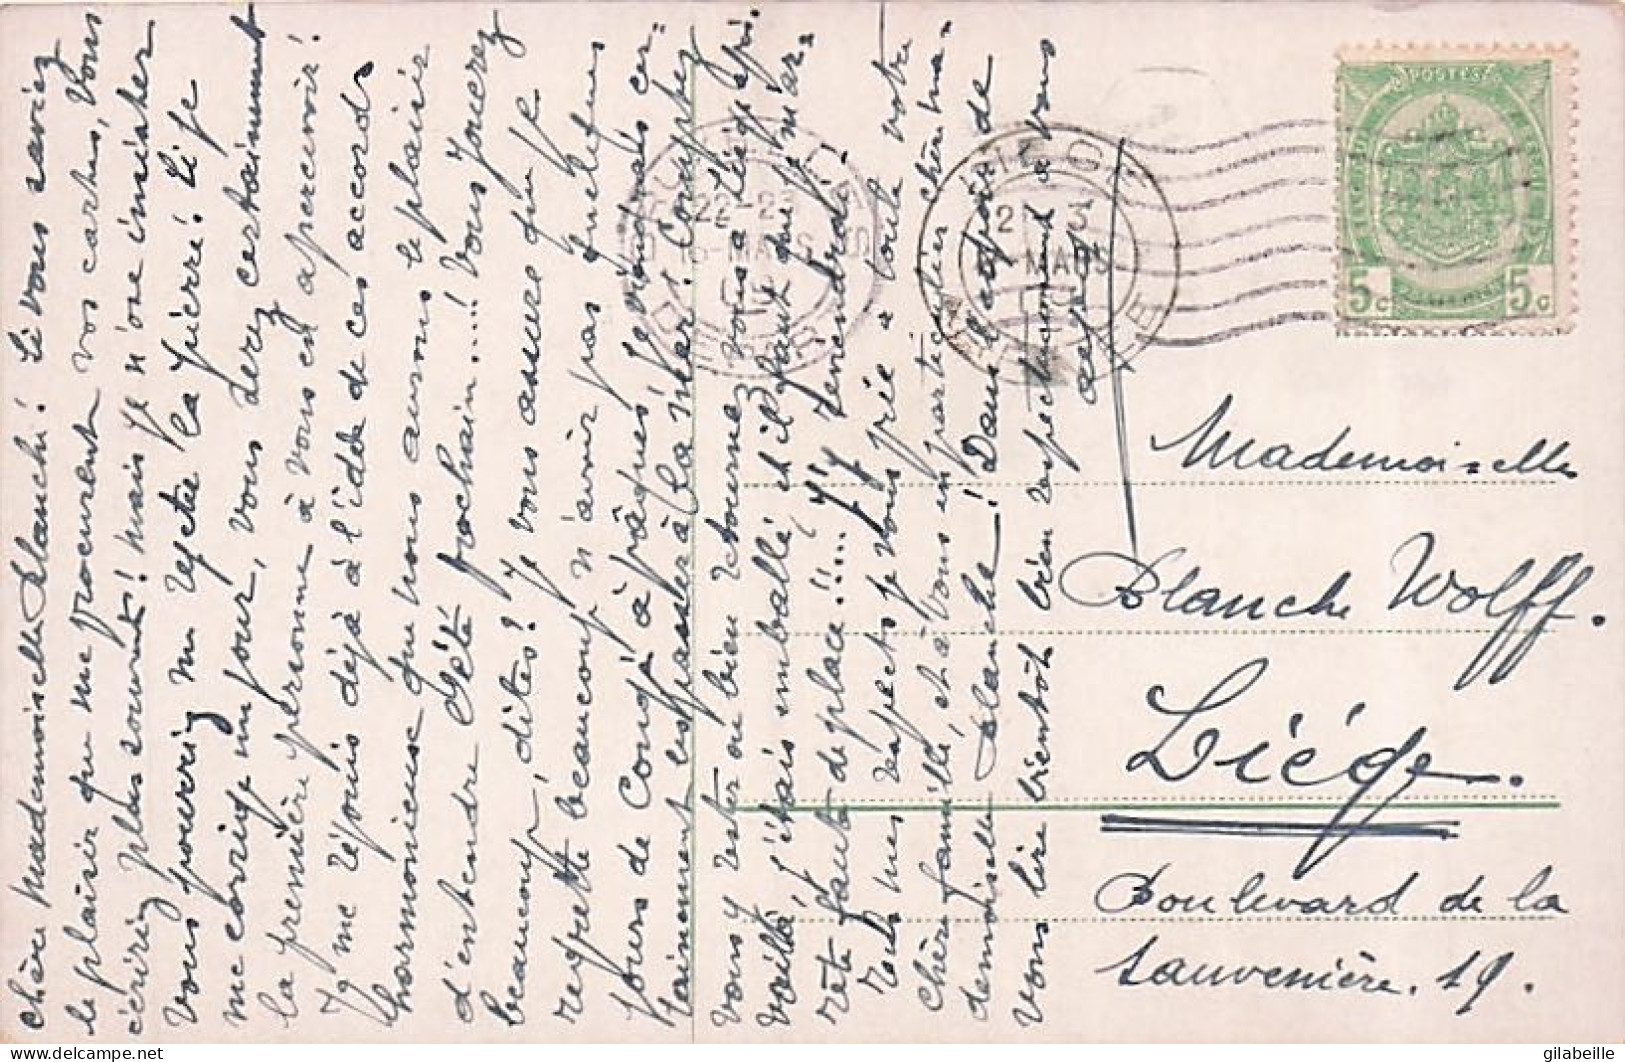 Chère Mademoiselle Blanche! Si vous saviez
le plaisir que me procurent vos cartes, vous
écririez plus souvent! mais je n'ose insister
vous pourriez m' la pierre! Si je
me corrige un jour, vous serez certainement
la première personne à vous en apercevoir!
Je me réjouis déjà à l'idée de ces accords
harmonieux que nous aurons le plaisir
d'entendre l'été prochain....! Vous jouerez
beaucoup, dites? Je vous assure que je
regrette beaucoup n'avoir pas quelques
jours de congé à pâques, je voudrais cer-
tainement les passer à la mer! Comptez
vous y rester ou bien retournez vous à Liége?
voilà, j'étais emballé et il faut que je m'ar-
rête faute de place!!.... J'y reviendrai!
Tous mes respects je vous prie à toute votre
chère famille, et à vous en particulier chère ma-
demoiselle Blanche! Dans l'espoir de
vous lire bientôt bien respectueusement à vous
POSTES
5c 5c
22-23
MARS
2
MARS
Mademoiselle
Blanche Wolff.
Liége.
Boulevard de la
Sauvenière. 19.
delcampe.net
gilabeille